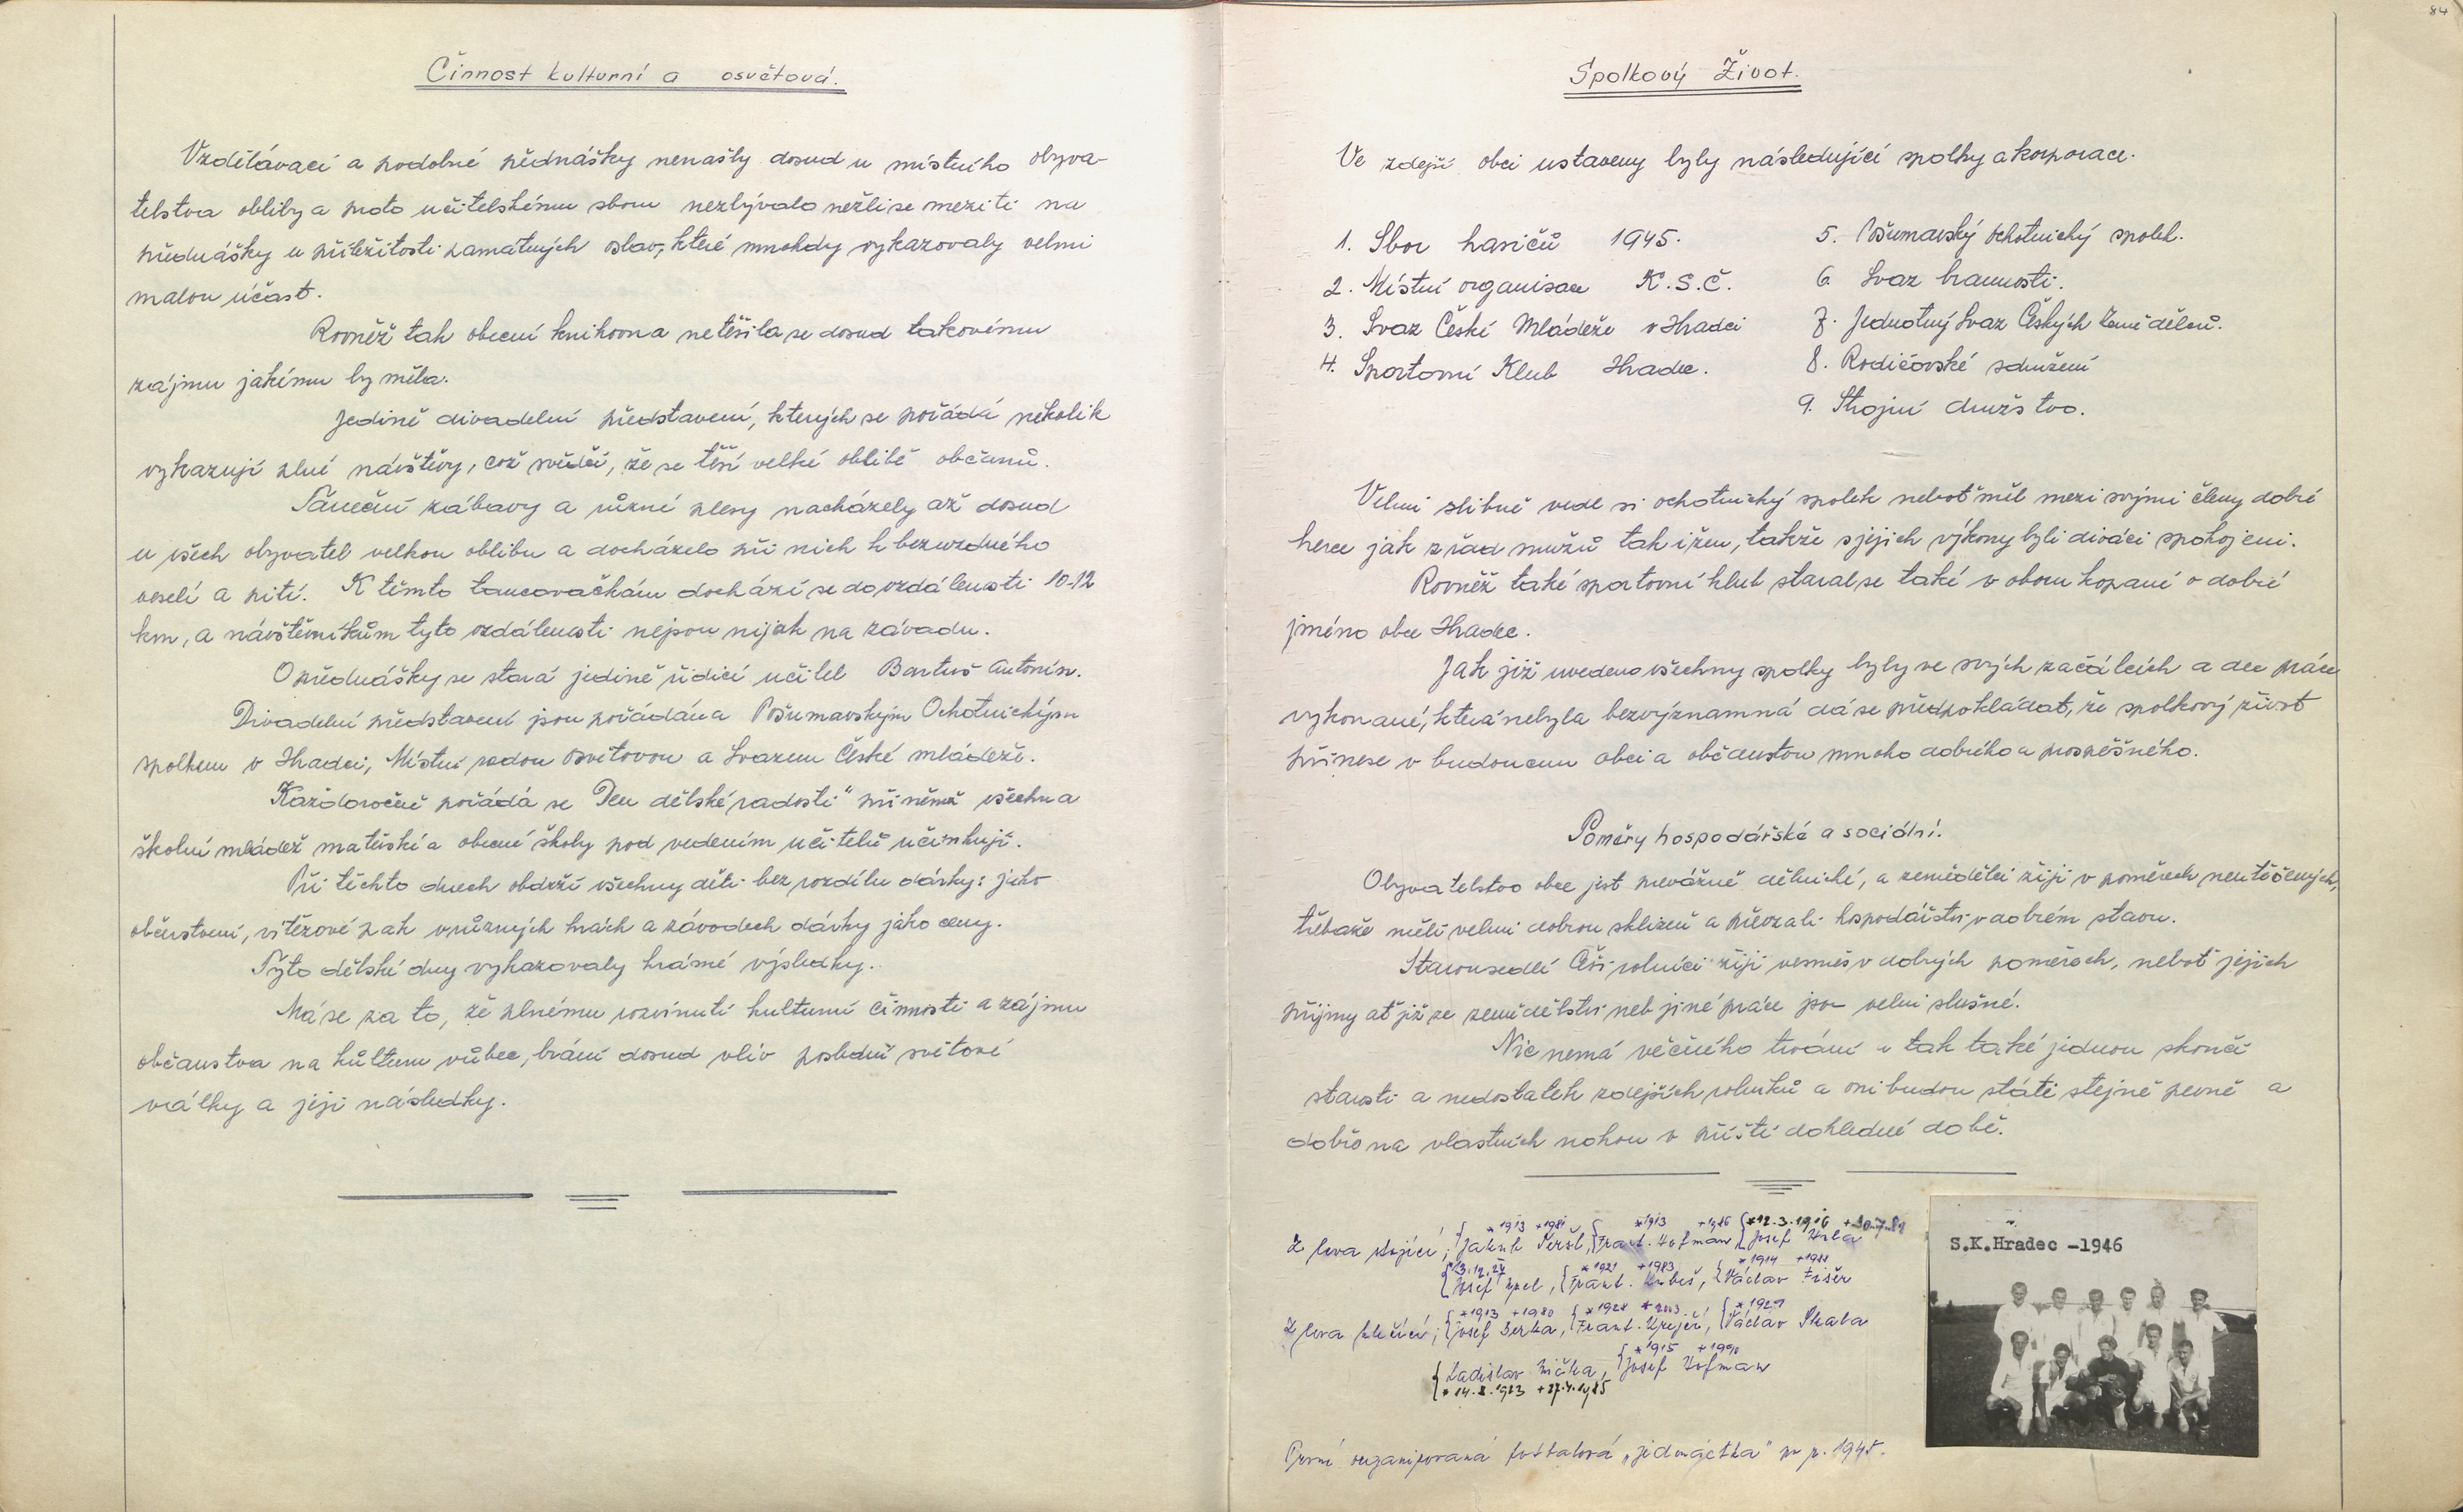 84
Činnost kulturní a osvětová.
Vzdělávací a podobné přednášky nenašly dosud u místního obyva-
telstva obliby a proto učitelskému sboru nezbývalo nežli se meziti na
přednášky u příležitosti památných oslav, které mnohdy vykazovaly velmi
malou účast.
Rovněž tak obecní knihovna netěšila se dosud takovému
zájmu jakému by měla.
Jedině divadelní představení, kterých se pořádá několik
vykazují plné návštěvy, což svědčí, že se těší velké oblibě občanů.
Taneční zábavy a různé plesy nacházely až dosud
u všech obyvatel velkou oblibu a docházelo při nich k bezuzdného
veselí a pití. K těmto tancovačkám dochází se do vzdálenosti 10-12
km, a návštěvníkům tyto vzdálenosti nejsou nijak na závadu.
O přednášky se stará jedině řídící učitel Bartuš Antonín.
Divadelní představení jsou pořádána Pošumavským Ochotnickým
spolkem v Hradci, Místní radou osvětovou a Svazem České mládeže.
Každoročně pořádá se Den dětské radosti" při němž všechna
školní mládež mateřské a obecné školy pod vedením učitelů účinkují.
Při těchto dnech obdrží všechny děti bez rozdílu dárky: jako
občerstvení, vítězové pak v různých hrách a závodech dárky jako ceny.
Tyto dětské dny vykazovaly krásné výsledky.
Má se za to, že plnému rozvinutí kulturní činnosti a zájmu
občanstva na kůlturu vůbec, brání dosud vliv poslední světové
války a její následky.
Spolkový Život.
Ve zdejší obci ustaveny byly následující spolky a korporace.
1. Sbor hasičů 1945.
2. Místní organisace K.S.Č.
3. Svaz České Mládeže v Hradci
4. Sportovní Klub Hradec.
5. Pošumavský Ochotnický spolek.
6 Svaz brannosti.
7. Jednotný Svaz Českých Zemědělců.
8. Rodičovské sdružení
9. Strojní družstvo.
Velmi slibně vedl si ochotnický spolek neboť měl mezi svými členy dobré
herce jak z řad mužů tak i žen, takže s jejich výkony byli diváci spokojeni.
Rovněž také sportovní klub staral se také v oboru kopané o dobré
jméno obce Hradec.
Jak již uvedeno všechny spolky byly ve svých začátcích a dle práce
vykonané, která nebyla bezvýznamná dá se předpokládat, že spolkový život
přinese v budoucnu obci a občanstvu mnoho dobrého a prospěšného.
Poměry hospodářské a sociální.
Obyvatelstvo obce jest převážně dělnické, a zemědělci žijí v poměrech neutěšených,
třebaže měli velmi dobrou sklizeň a převzali hospodářství v dobrém stavu.
Starousedlí Češi rolníci žijí vesměs v dobrých poměrech, neboť jejich
příjmy ať již ze zemědělství neb jiné práce jsou velmi slušné.
Nic nemá věčného trvání a tak také jednou skončí
starosti a nedostatek zdejších rolníků a oni budou státi stejně pevně a
dobře na vlastních nohou v příští dohledné době.
*1913 +1981 *1913 +1986 *12.3.1916 +30.7.81
Z leva stojící; Jakub Teršl, Frant. Hofman, Josef Hrla
*3.12.27 *1921 +1983 *1914 +1988
Josef Špel, Frant. Kubeš, Václav Fišer
*1913 +1980 *1928 +2003 *1927
Z leva klečící; Josef Berka, Frant. Krejčí, Václav Skala
*1915 +1990
Ladislav Hička, Josef Hofman
*14.2.1923 +27.4.1985
První organizovaná fotbalová „jedenáctka" po r. 1945.
S.K.Hradec -1946